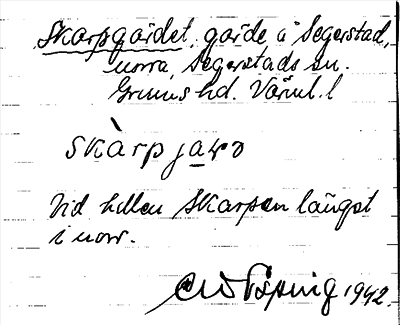 Skarpgärdet, gärde å Segerstad,
norra, Segerstads sn.
Grums hd. Värml. l
skàrpjaṛə
Vid hällen Skarpen längst
i norr.
1942.